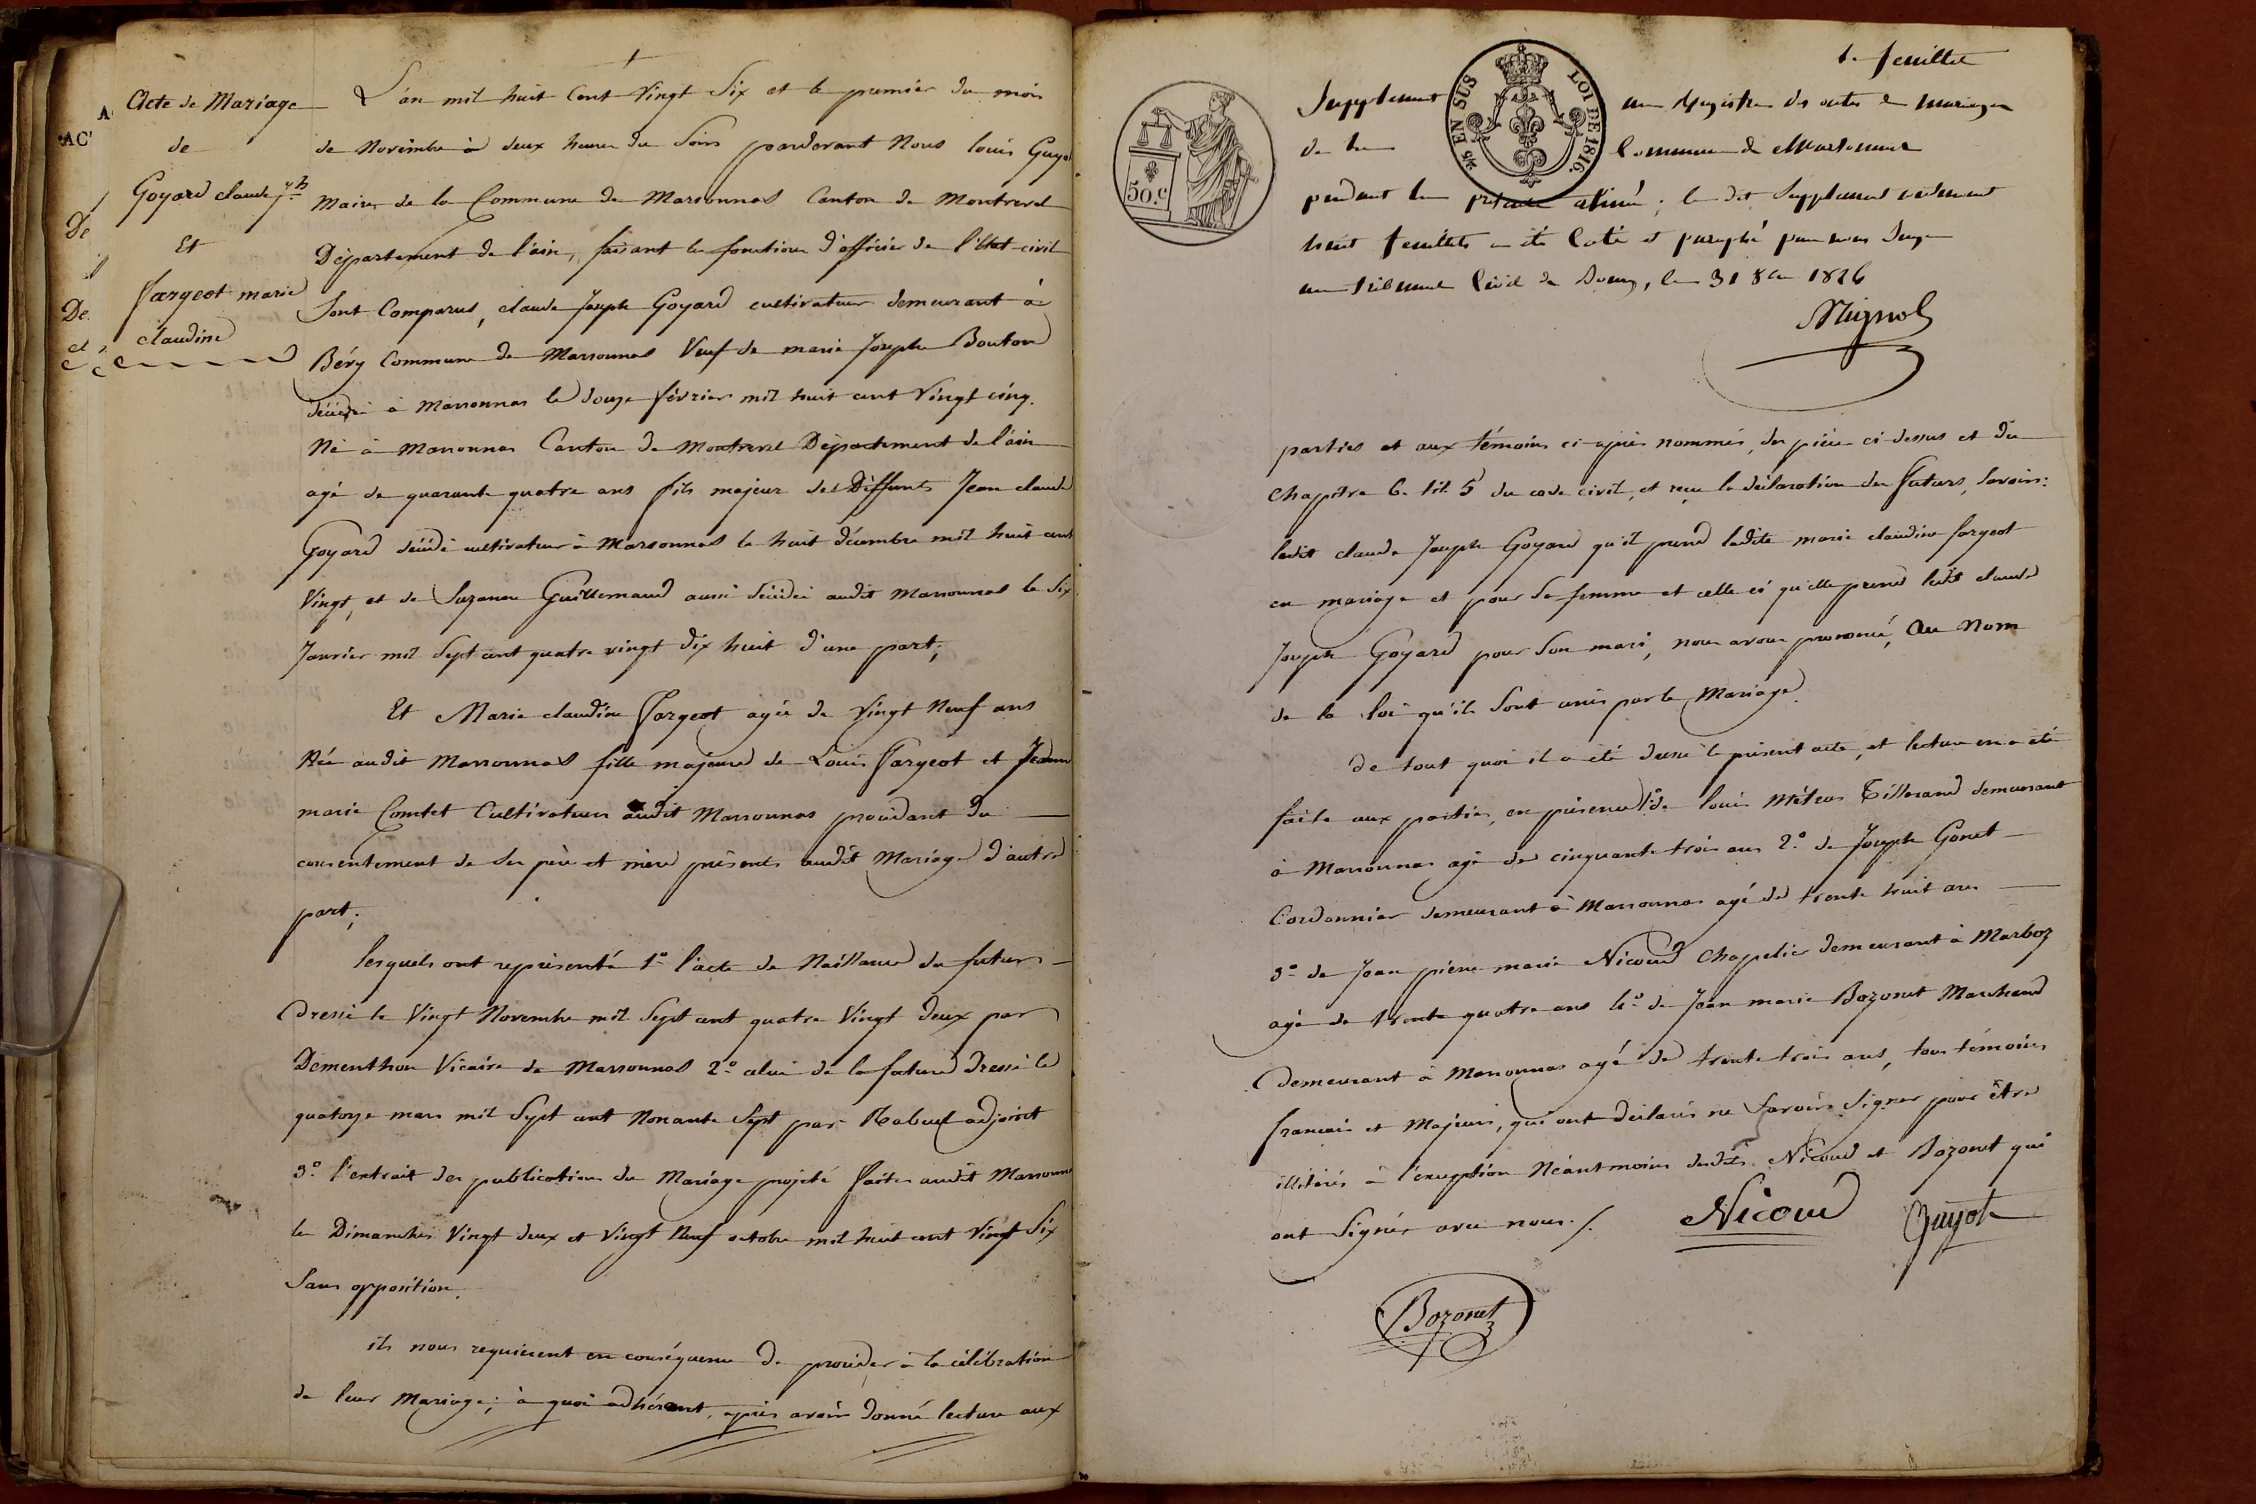 Acte de Mariage
de
Goyard claude jph
Et
Fargeot marie
claudine
L'an mil huit Cent Vingt Six et le premier du mois
de Novembre à deux heures du Soir pardevant Nous louis Guyot
Maire de la Commune de Marsonnas Canton de Montrevel
Département de l'ain, faisant les fonctions d'officier de l'état civil
Sont Comparus, claude Joseph Goyard cultivateur demeurant à
Béry Commune de Marsonnas Veuf de marie Josephe Bouton
décédée à Marsonnas le douze février mil huit cent Vingt cinq.
Né à Marsonnas Canton de Montrevel Département de l'ain
agé de quarante quatre ans fils majeur des Deffunts Jean claude
Goyard décédé cultivateur à Marsonnas le huit décembre mil huit cent
Vingt, et de Suzanne Guillemaud aussi décédée audit Marsonnas le Six
Janvier mil Sept cent quatre vingt dix huit d'une part;
Et Marie claudine Fargeot agée de Vingt Neuf ans
Née audit Marsonnas fille majeure de Louis Fargeot et Jeanne
marie Comtet Cultivateurs audit Marsonnas procédant du
consentement de Ses père et mère présents audit Mariage d'autre
part;
lesquels ont représenté 1º l'acte de Naissance du futur
Dressé le Vingt Novembre mil Sept cent quatre Vingt deux par
Dementhon Vicaire de Marsonnas 2º celui de la future Dressé le
quatorze mars mil Sept cent Nonante Sept par Rabuel adjoint
3º l'extrait des publications du Mariage projeté faites audit Marsonnas
les Dimanches Vingt deux et Vingt Neuf octobre mil huit cent Vingt Six
Sans opposition.
ils nous requierent en conséquence de procéder à la célébration
de leur Mariage; à quoi adhérant, après avoir donné lecture aux
1er feuillet
Supplément au Registre des actes de mariages
de la Commune de Marsonnas
pendant la présente année; le dit Supplément contenant
huit feuillets a été Coté et paraphé par nous Juge
au tribunal Civil de Bourg, le 31 8bre 1826
Mignot
50.C
25 EN SUS
LOI DE 1816.
parties et aux témoins ci-après nommés, des pièces ci-dessus et du
Chapitre 6. tit. 5 du code civil, et reçu la déclaration des Futurs, Savoir:
ledit claude Joseph Goyard qu'il prend ladite marie claudine fargeot
en mariage et pour Sa femme et celle ci qu'elle prend ledit claude
Joseph Goyard pour Son mari, nous avons prononcé, au Nom
de la loi qu'ils Sont unis par le Mariage.
De tout quoi il a été dressé le présent acte, et lecture en a été
faite aux parties, en présence 1º de louis Tillerand demeurant
à Marsonnas agé de cinquante trois ans 2º de Joseph Gonet
Cordonnier demeurant à Marsonnas agé de trente huit ans
3º de Jean pierre marie Nicoud Chapelier demeurant à Marboz
agé de trente quatre ans 4º de Jean marie Bozonet Marchand
demeurant à Marsonnas agé de trente trois ans, tous témoins
francais et Majeurs, qui ont déclarés ne Savoir Signer pour être
illitérés à l'exception Néantmoins desdits Nicoud et Bozonet qui
ont Signés avec nous./.
Nicoud
Guyot
Bozonet